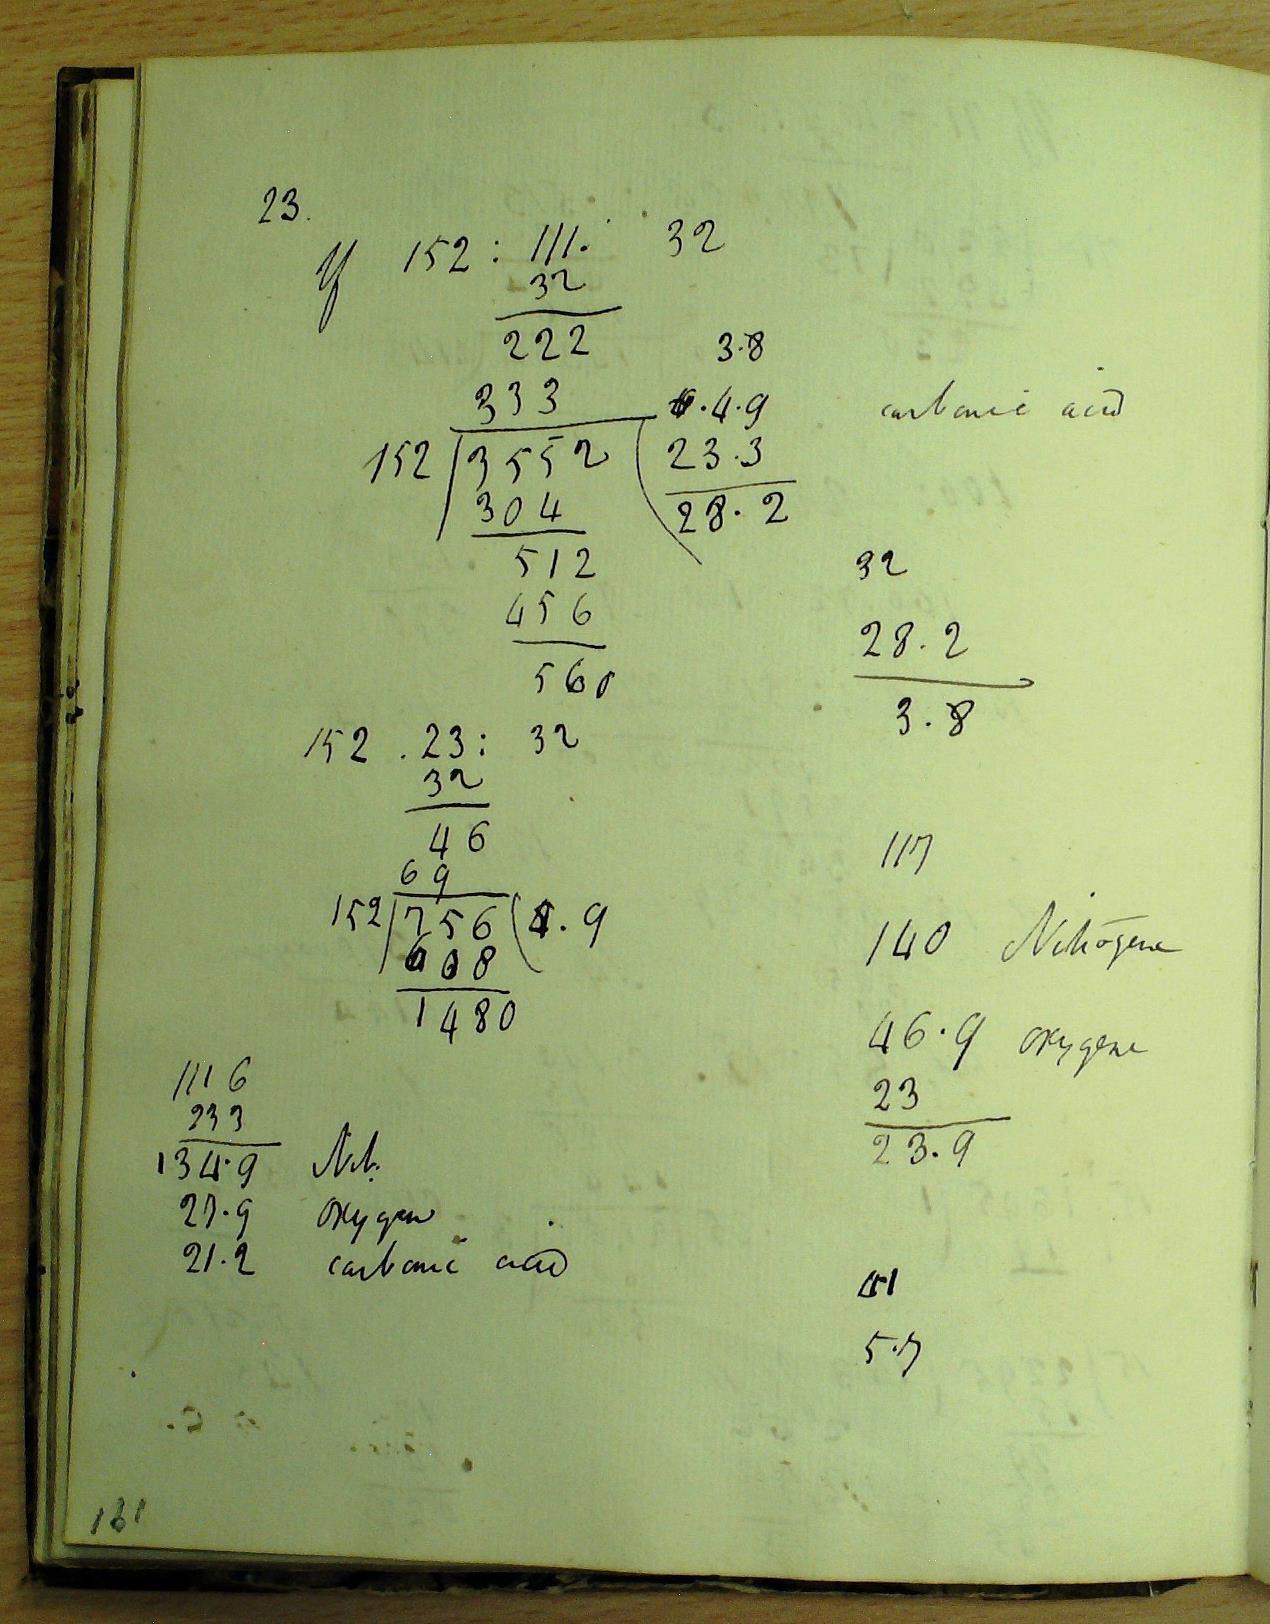 23.
If 152 : 111. 32
32
222 3.8
333 .4.9 carbonic acid
152 3552 23.3
304 28.2
512 32
456 28.2
560 3.8
152 . 23 : 32
32
46
69
152 756 4.9
608
1480
117
140 Nitrogene
46.9 oxygene
23
23.9
1116
233
134.9 Nit:
27.9 oxygen
21.2 carbonic acid
41
5.7
131